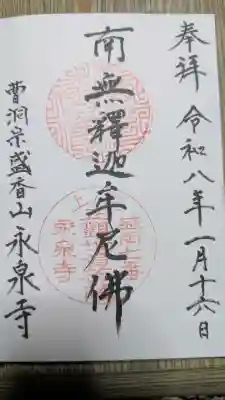 奉拝 令和八年一月十六日
南無釋迦牟尼佛
曹洞宗盛香山永泉寺
永泉寺